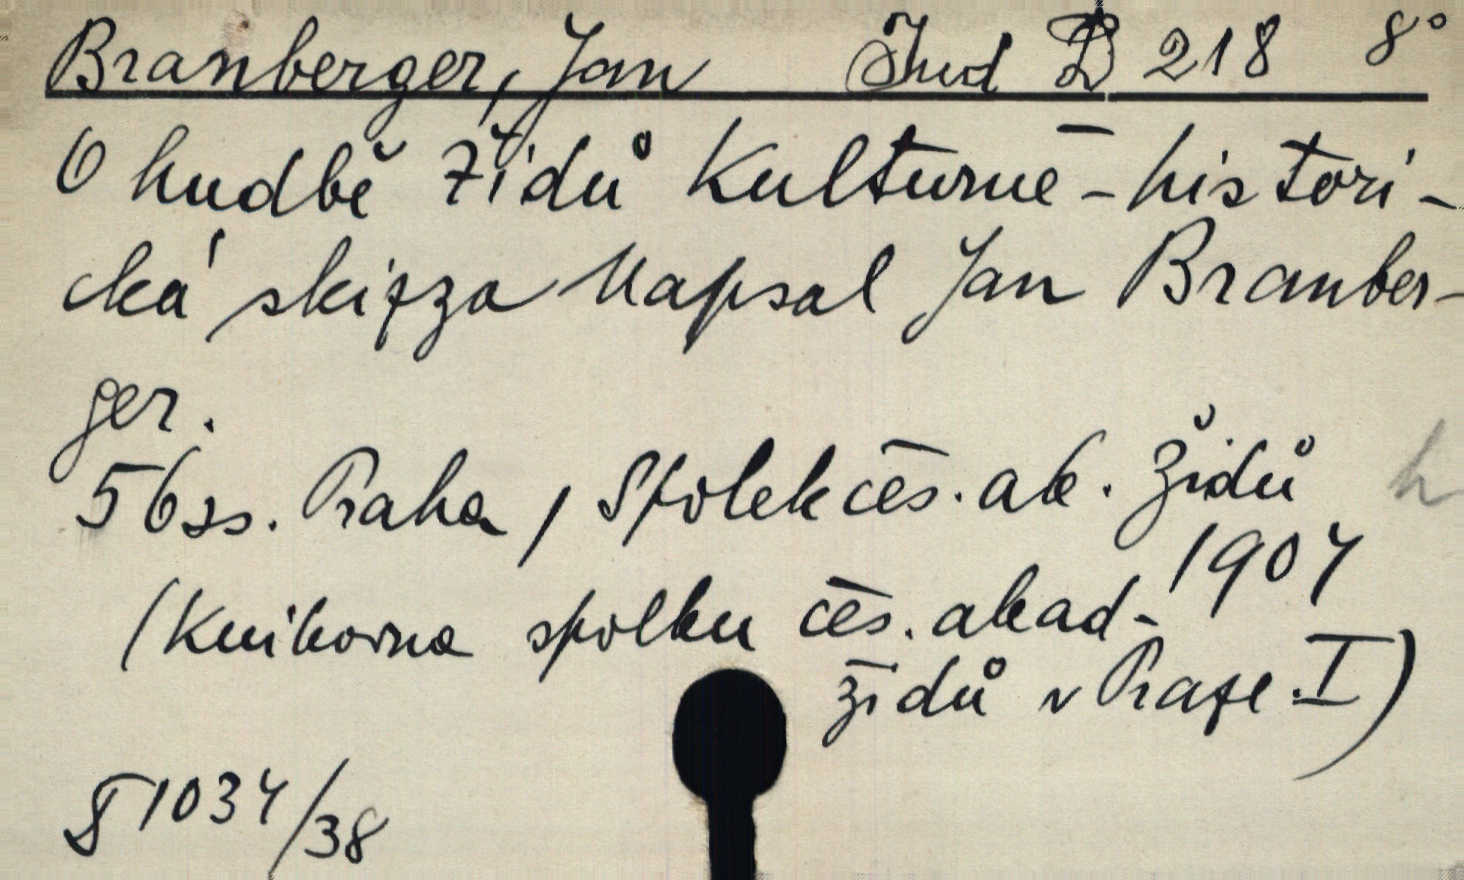 Branberger, Jan Jud D 218 8°
O hudbě Židů Kulturně-histori-
cká skizza Napsal Jan Branber-
ger.
56 ss. Praha, Spolek čes. ak. Židů
1907
(Knihovna spolku čes. akad.
židů v Praze. I)
1034/38
h